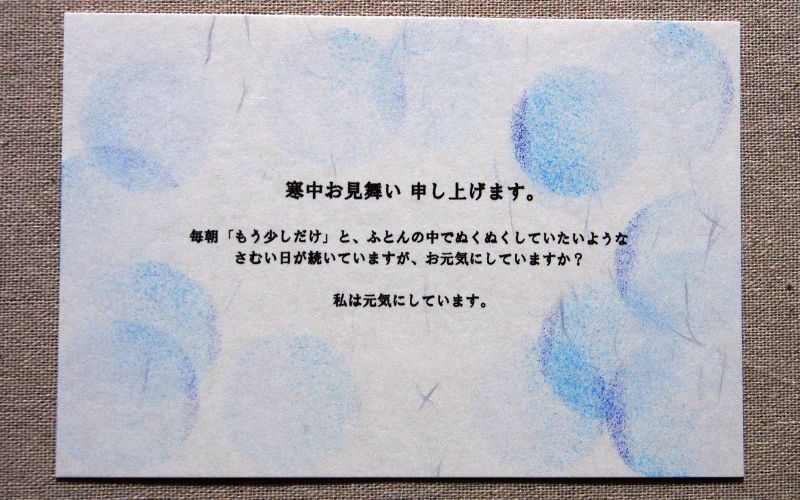 寒中お見舞い 申し上げます。
毎朝「もう少しだけ」と、ふとんの中でぬくぬくしていたいような
さむい日が続いていますが、お元気にしていますか？
私は元気にしています。